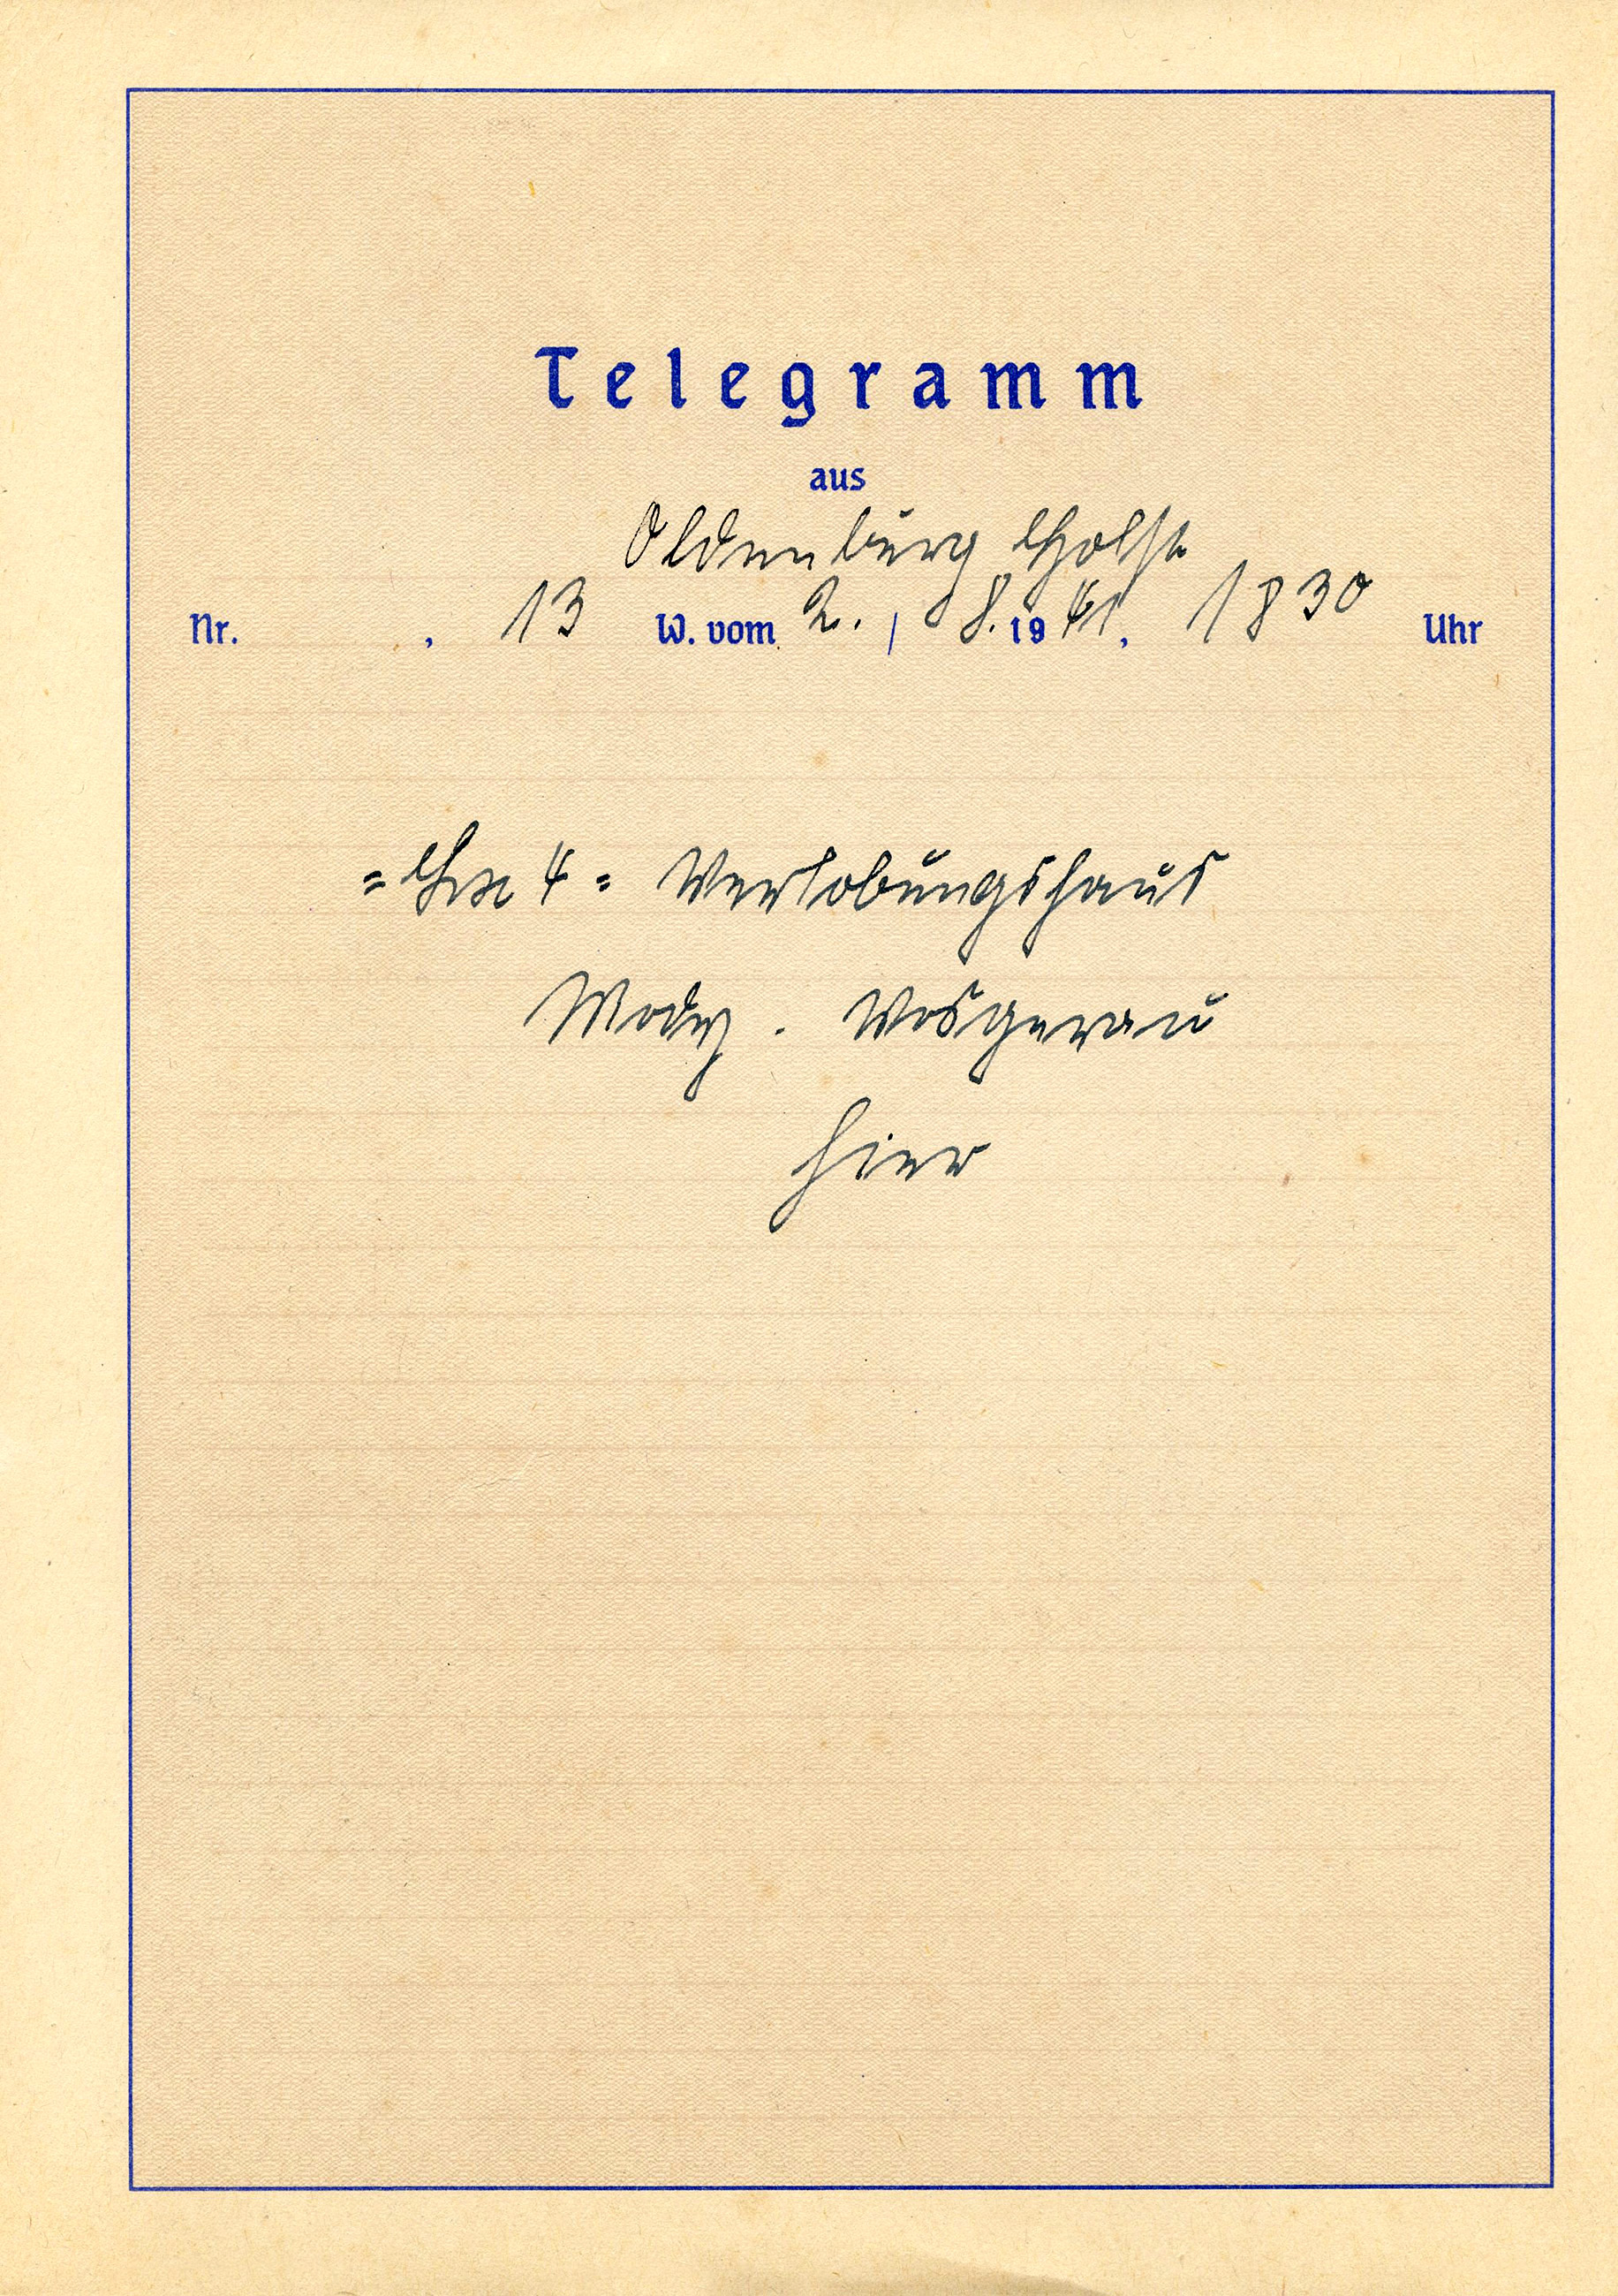 Telegramm
aus
Oldenburg Holst
Nr. , 13 W. vom 2. / 8. 19 41, 1830 Uhr
= Lx 4 = Verlobungshaus
Wosgerau
hier